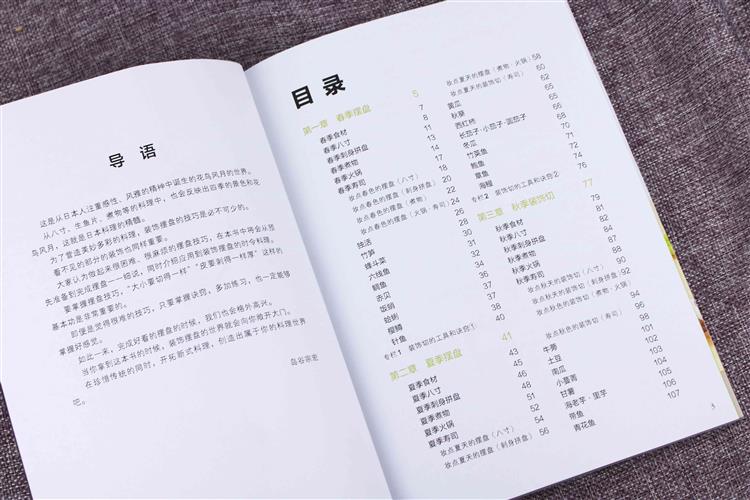 导 语
这是从日本人注重感性、风雅的精神中诞生的花鸟风月的世界。
从八寸、生鱼片、煮物等的料理中，也会反映出四季的景色和花
鸟风月，这就是日本料理的精髓。
为了营造美妙多彩的料理，装饰摆盘的技巧是必不可少的。
看不见的部分的装饰也同样重要。
大家认为做起来很困难、很麻烦的摆盘技巧，在本书中将会从预
先准备到完成摆盘一一细说，同时介绍应用到装饰摆盘的时令料理。
要掌握摆盘技巧，“大小要切得一样”“皮要剥得一样厚”这样的
基本功是非常重要的。
即便是觉得很难的技巧，只要掌握诀窍，多加练习，也一定能够
掌握好感觉。
如此一来，完成好看的摆盘的时候，我们也会格外高兴。
当你拿到这本书的时候，装饰摆盘的世界就会向你敞开大门。
在珍惜传统的同时，开拓新式料理，创造出属于你的料理世界
吧。
岛谷宗宏
目录
第一章 春季摆盘 5
春季食材 7
春季八寸 8
春季刺身拼盘 11
春季煮物 13
春季火锅 14
春季寿司 17
妆点春色的摆盘（八寸） 18
妆点春色的摆盘（刺身拼盘） 20
妆点春色的摆盘（煮物） 22
妆点春色的摆盘（火锅·寿司） 24
独活 26
竹笋 28
蜂斗菜 30
六线鱼 31
鲷鱼 32
赤贝 34
饭蛸 35
蛤蜊 36
樱鳟 37
针鱼 38
专栏1 装饰切的工具和诀窍① 40
第二章 夏季摆盘 41
夏季食材 43
夏季八寸 45
夏季刺身拼盘 46
夏季煮物 48
夏季火锅 51
夏季寿司 52
妆点夏天的摆盘（八寸） 54
妆点夏天的摆盘（刺身拼盘） 56
妆点夏天的摆盘（煮物·火锅） 58
妆点夏天的装饰切（寿司） 60
黄瓜 62
秋葵 64
西红柿 65
长茄子·小茄子·圆茄子 66
冬瓜 68
竹荚鱼 70
鲍鱼 71
章鱼 72
海鳗 74
专栏2 装饰切的工具和诀窍② 76
第三章 秋季装饰切 77
秋季食材 79
秋季八寸 81
秋季刺身拼盘 82
秋季煮物 84
秋季火锅 87
秋季寿司 88
妆点秋天的装饰切（八寸） 90
妆点秋天的装饰切（刺身拼盘） 92
妆点秋天的装饰切（煮物·火锅） 94
妆点秋色的装饰切（寿司） 96
牛蒡 98
土豆 99
南瓜 100
小蔓菁 101
甘薯 103
海老芋·里芋 104
带鱼 106
青花鱼 107
3